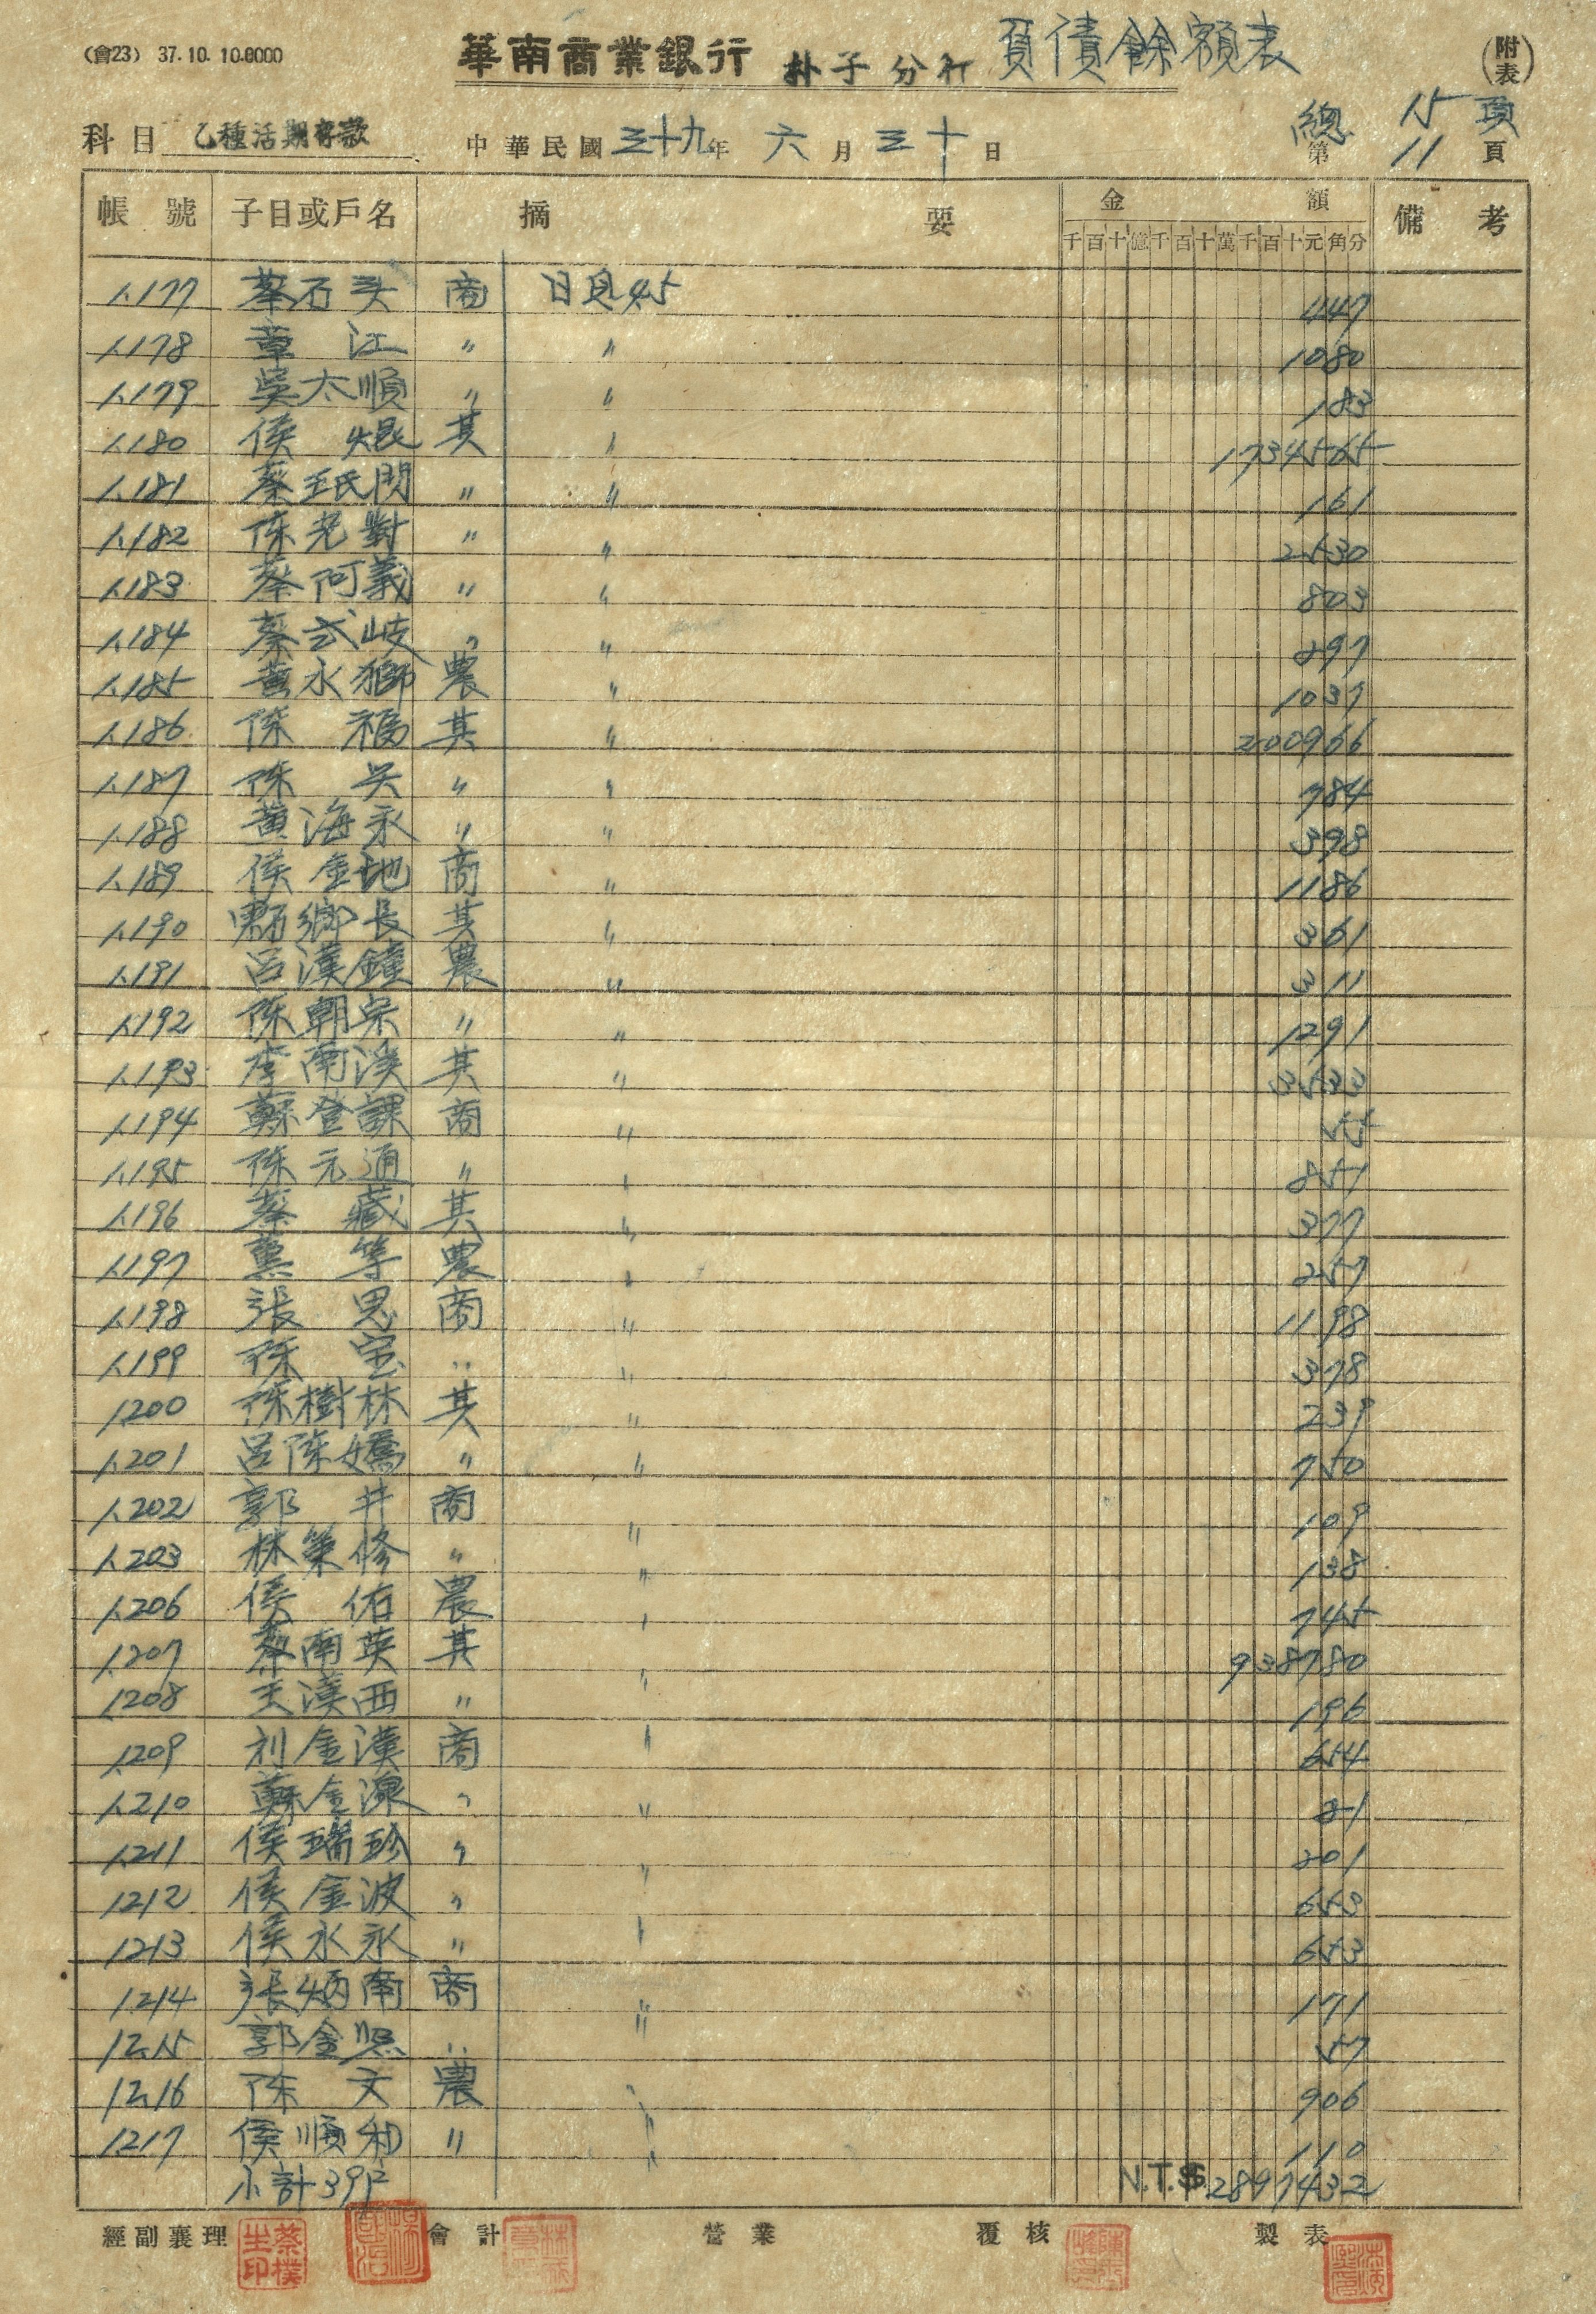 (會23) 37. 10. 10.0000
華南商業銀行 朴子分行 負債餘額表 (附表)
科目 乙種活期存款 中華民國三十九年 六月三十日 總15頁
第11頁
帳號 子目或戶名 摘要 金額 備考
千百十億千百十萬千百十元角分
1.177 蔡石头 商 日息45 447
1.178 章江 〃 〃 1080
1.179 吳太順 〃 〃 183
1.180 侯焜 其 〃 1734565
1.181 蔡王氏閃 〃 〃 161
1.182 陈老對 〃 〃 2530
1.183 蔡阿義 〃 〃 803
1.184 蔡武岐 〃 〃 297
1.185 黃水獅 農 〃 1037
1.186 陈福 其 〃 200966
1.187 陈吴 〃 〃 784
1.188 黃海永 〃 〃 398
1.189 侯金地 商 〃 1186
1.190 鄉長 其 〃 361
1.191 呂漢鐘 農 〃 311
1.192 陈朝宗 〃 〃 1291
1.193 李南溪 其 〃 3533
1.194 蘇登課 商 〃 55
1.195 陈元通 〃 〃 851
1.196 蔡藏 其 〃 377
1.197 等 農 〃 257
1.198 張思 商 〃 1198
1.199 陈宝 〃 〃 378
1.200 陈樹林 其 〃 239
1.201 呂陈嬌 〃 〃 750
1.202 郭井 商 〃 109
1.203 林策修 〃 〃 138
1.206 侯佑 農 〃 745
1.207 蔡南英 其 〃 938780
1208 王漢西 〃 〃 196
1.209 利金漢 商 〃 654
1.210 蘇金源 〃 〃 81
1.211 侯瑞珍 〃 〃 201
1212 侯金波 〃 〃 653
1213 侯水永 〃 〃 653
1.214 張炳南 商 〃 171
1215 郭金照 〃 〃 57
1216 陈天 農 〃 906
1217 侯順和 〃 〃 110
小計39戶 N.T.$ 2897432
經副襄理 會計 營業 覆核 製表
蔡樸生印